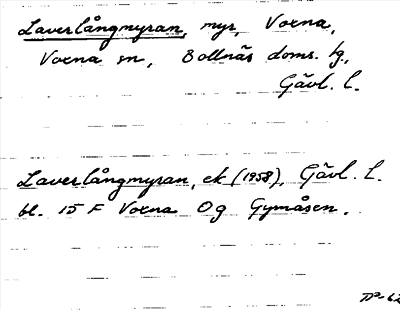 Laverlångmyran, myr, Voxna,
Voxna sn, Bollnäs doms. hg,
Gävl. l.
Laverlångmyran, ek (1958), Gävl. l.
bl. 15 F Voxna Og Gymåsen.